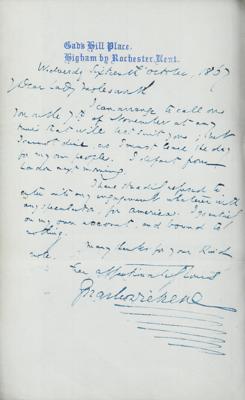 Gad's Hill Place,
Higham by Rochester, Kent.
Wednesday Sixteenth October, 1867
My Dear Lady Molesworth
I can arrange to call on
you on the 7th of November at any
time that will best suit you; but
I cannot dine, as I must leave the day
for my own people. I depart from
London next morning.
I have steadily refused to
enter into any engagement whatever with
any speculator, for America. I go entirely
on my own account, and bound to
nothing.
Many thanks for your kind
note.
Ever affectionately Yours
Charles Dickens